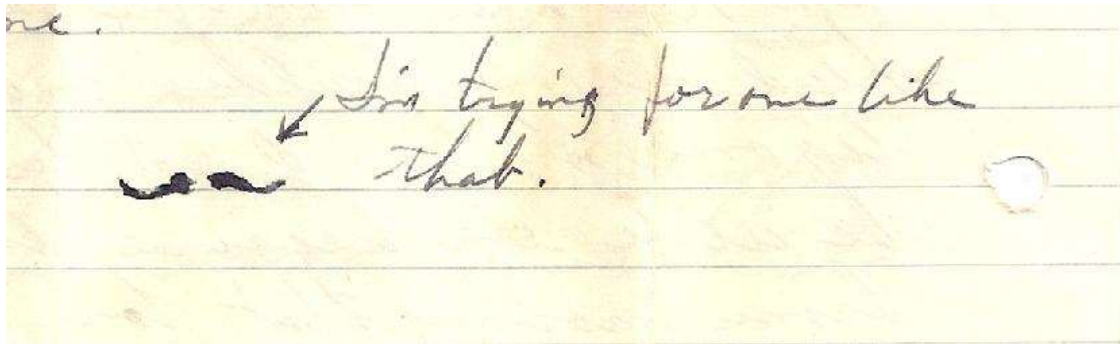 I'm trying for one like
that.